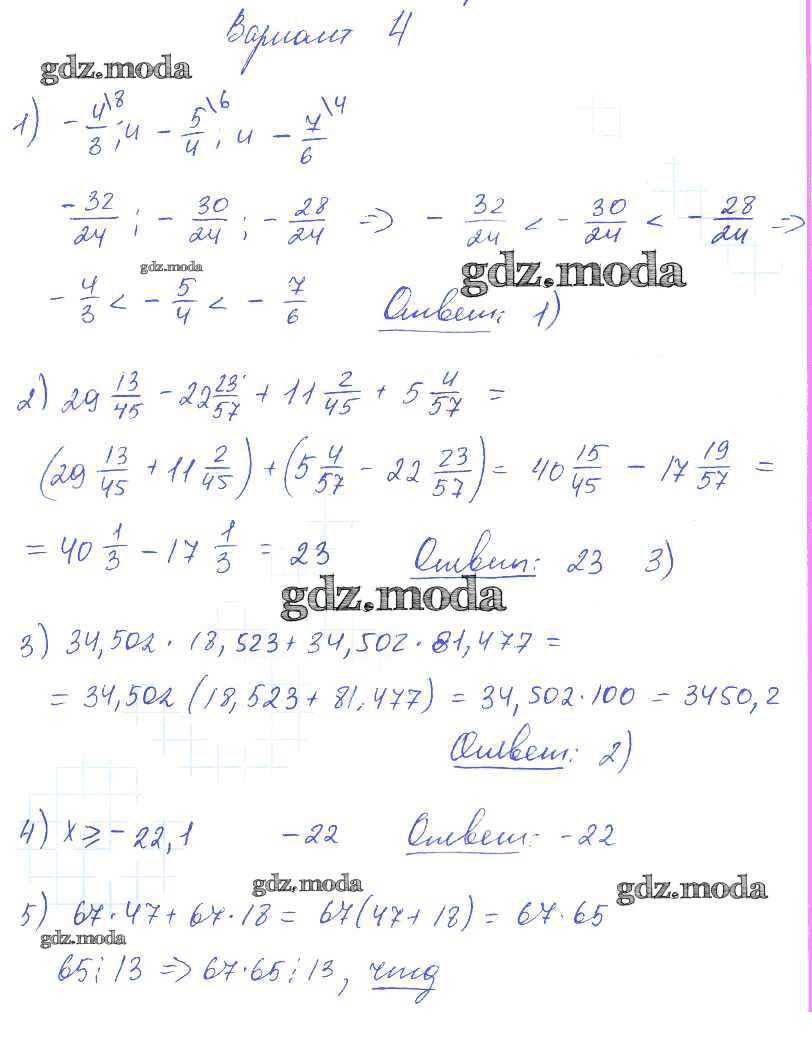 Вариант 4
gdz.moda
1) -4/3\8; и -5/4\6; и -7/6\4
-32/24; -30/24; -28/24 => -32/24 < -30/24 < -28/24 =>
gdz.moda gdz.moda
-4/3 < -5/4 < -7/6 Ответ: 1)
2) 29 13/45 - 22 23/57 + 11 2/45 + 5 4/57 =
(29 13/45 + 11 2/45) + (5 4/57 - 22 23/57) = 40 15/45 - 17 19/57 =
= 40 1/3 - 17 1/3 = 23 Ответ: 23 3)
gdz.moda
3) 34,502 · 18,523 + 34,502 · 81,477 =
= 34,502 (18,523 + 81,477) = 34,502 · 100 = 3450,2
Ответ: 2)
4) x ⩾ -22,1 -22 Ответ: -22
gdz.moda gdz.moda
5) 67·47 + 67·18 = 67(47 + 18) = 67·65
gdz.moda
65⋮13 => 67·65⋮13, чтд